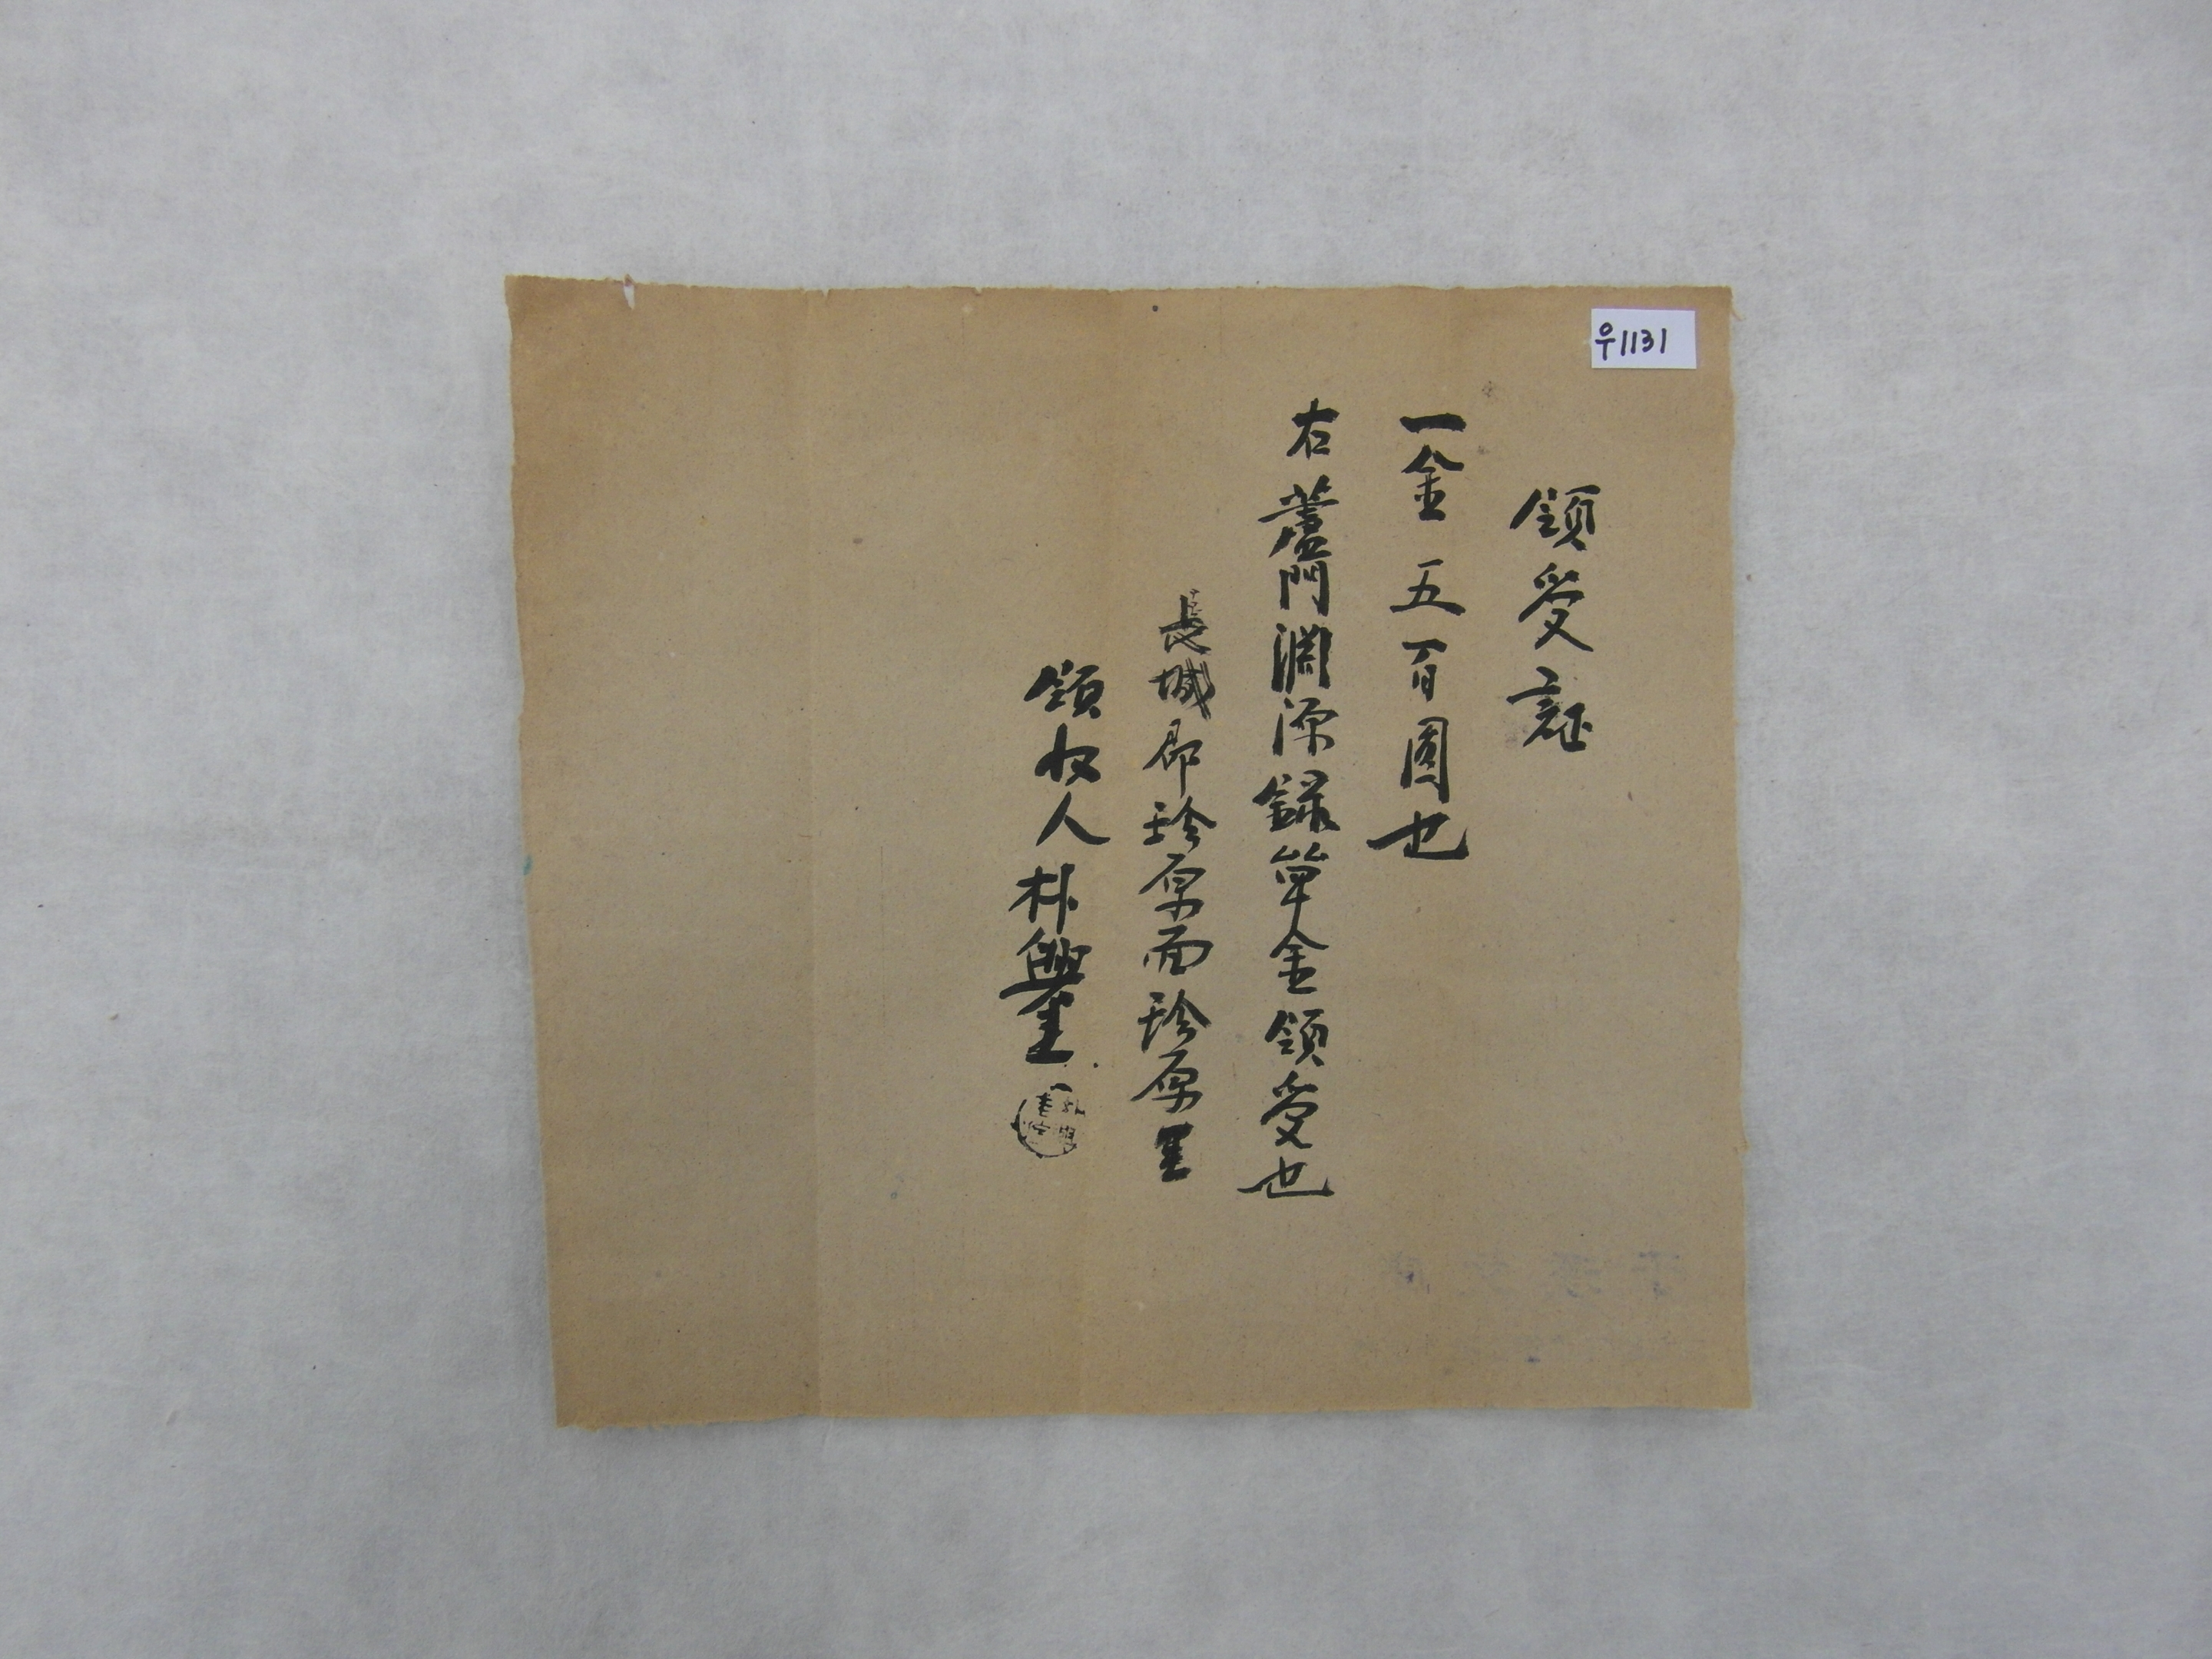 우1131
領受証
一金 五百圓也
右蘆門淵源録單金領受也
長城郡珍原面珍原里
領収人 朴興圭